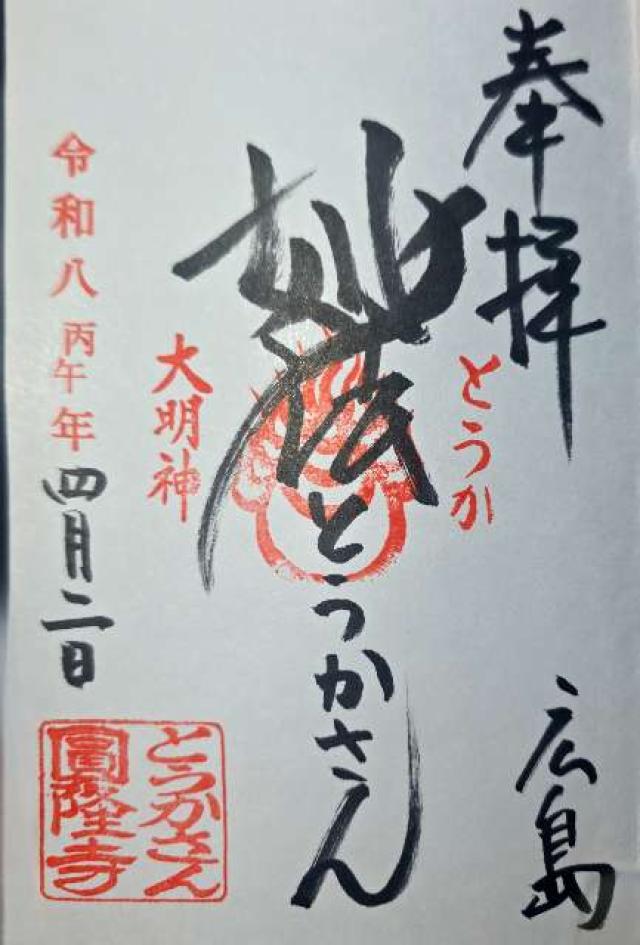 奉拝
広島
とうか
妙法
とうかさん
大明神
令和八丙午年四月二日
とうかさん
圓隆寺